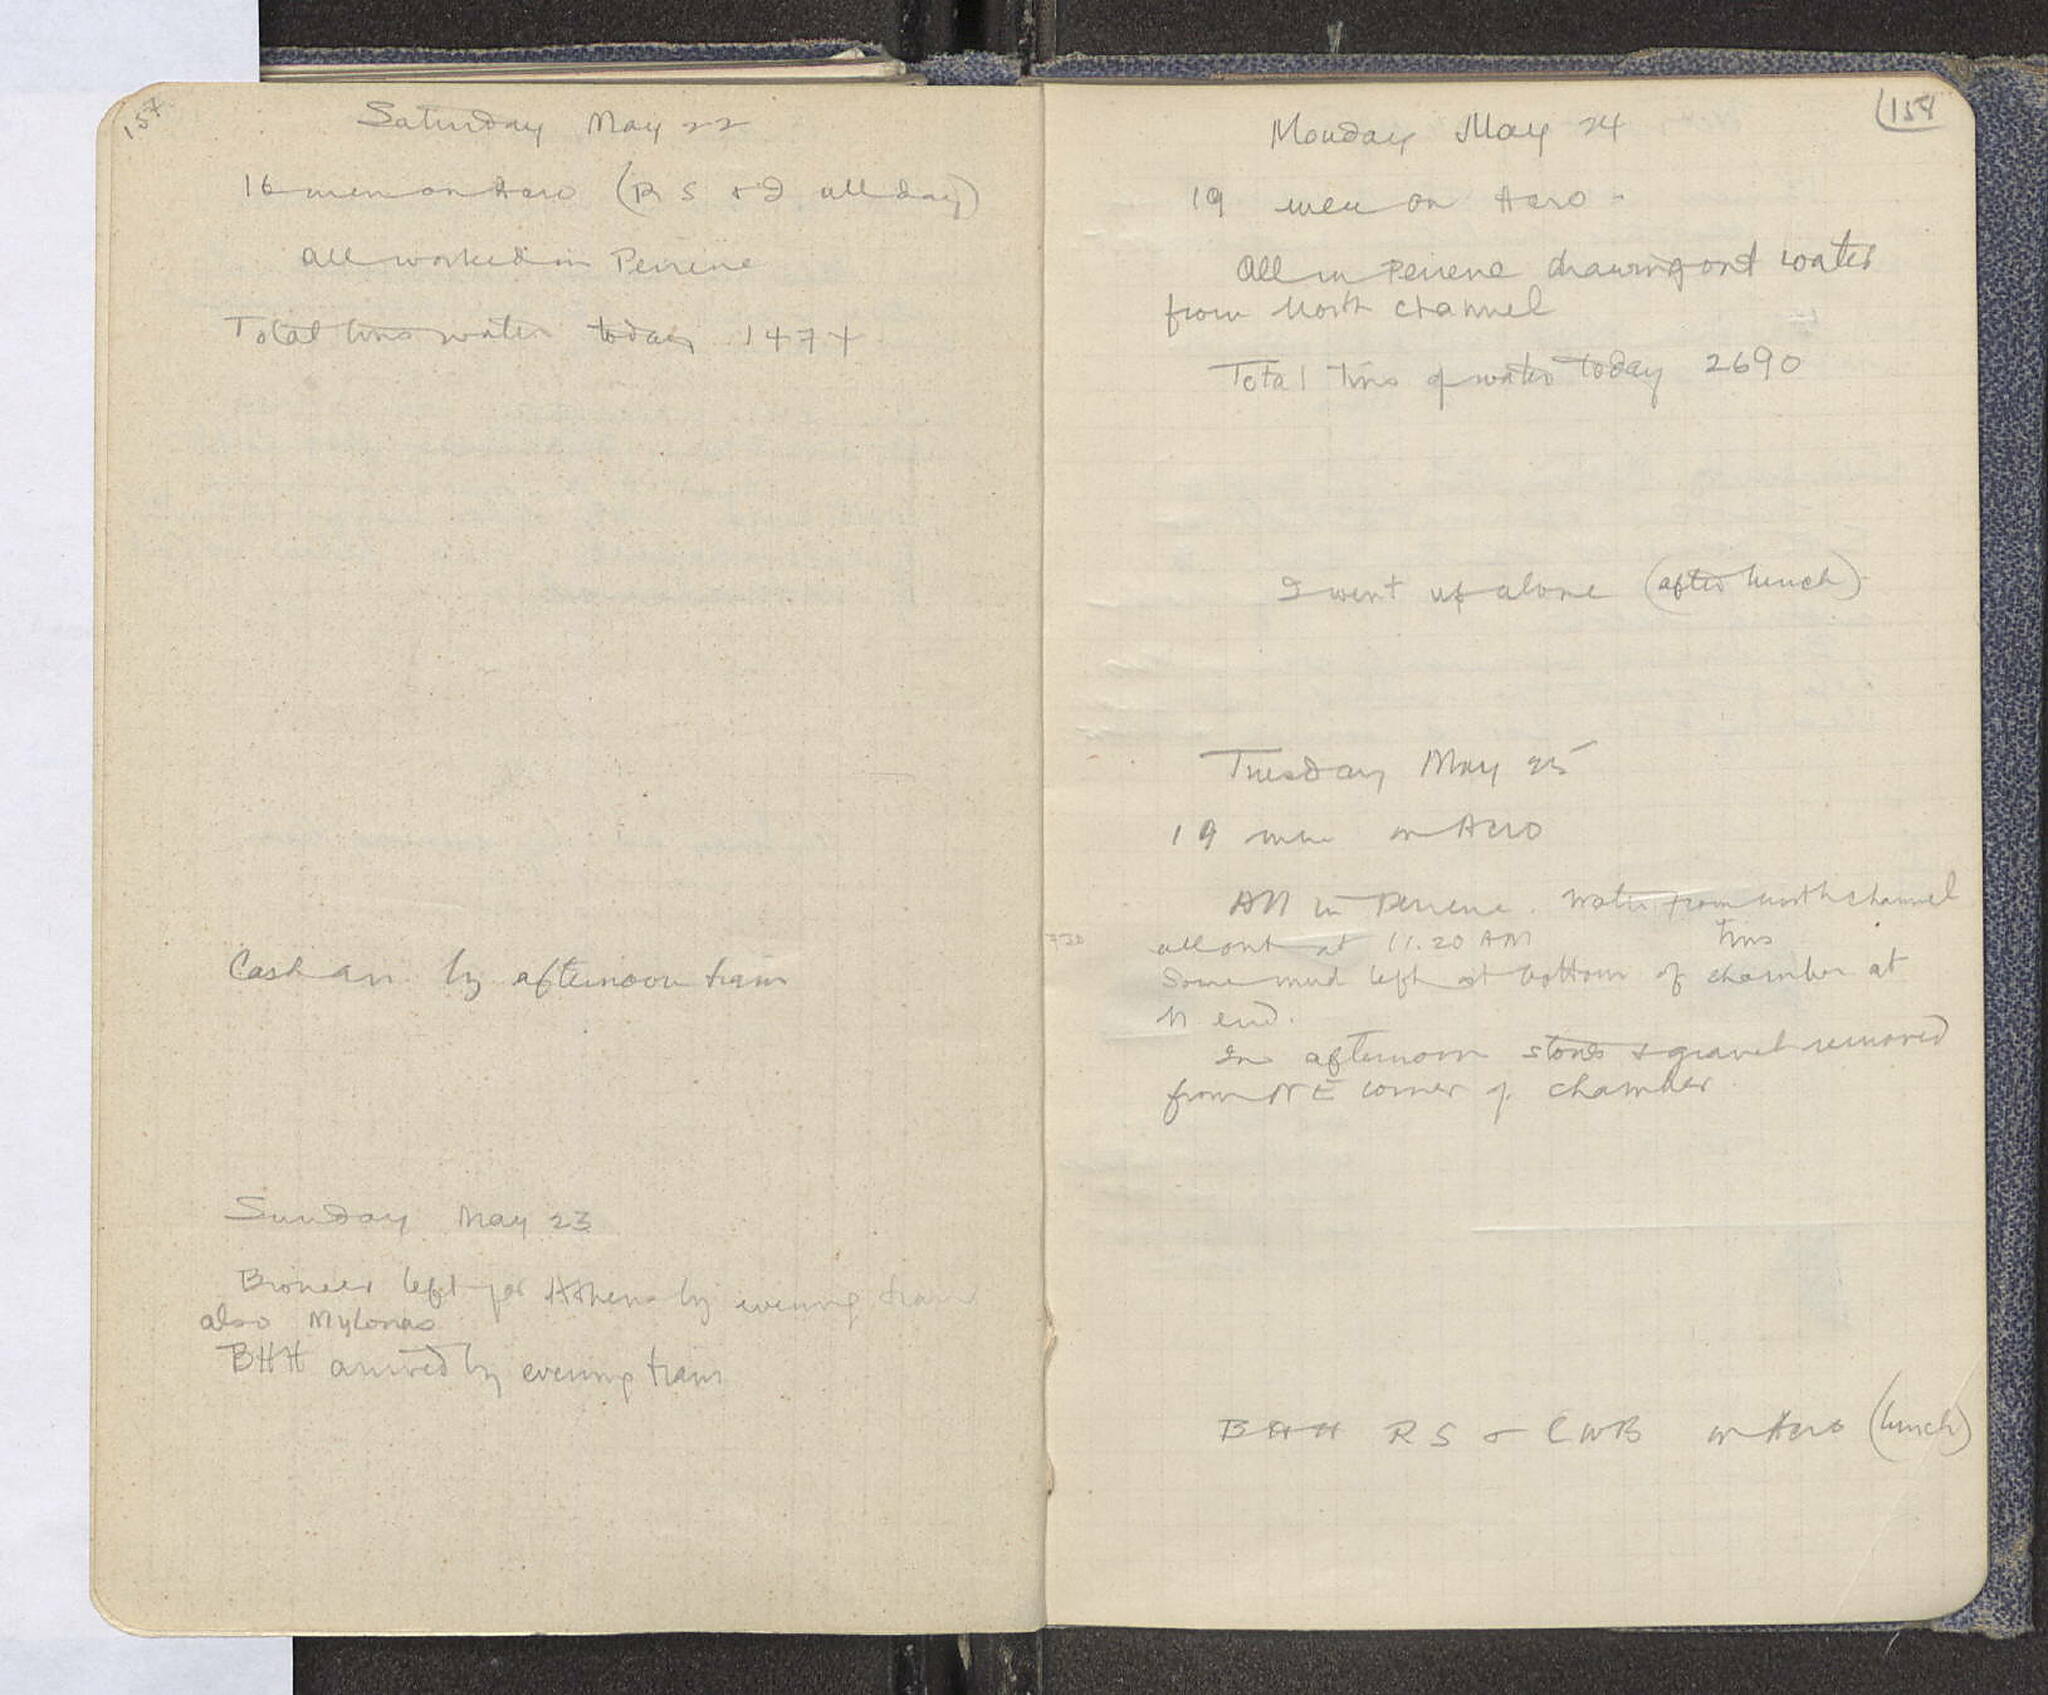 157
Saturday May 22
16 men on Acro (R S & I all day)
All worked in Peirene
Total tins water today 1474
Cash arr. by afternoon train
Sunday May 23
Broneer left for Athens by evening train
also Mylonas
BHH arrived by evening train
158
Monday May 24
19 men on Acro -
All in Peirene drawing out water
from North channel
Total tins of water today 2690
I went up alone (after lunch)
Tuesday May 25
19 men on Acro
All in Peirene. Water from north channel
all out at 11.20 AM tins
730
Some mud left at bottom of chamber at
N end.
In afternoon stones & gravel removed
from NE corner of chamber
BHH R S & CWB on Acro (lunch)